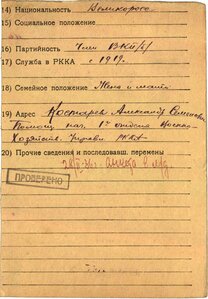 14) Национальность Великоросс
15) Социальное положение
16) Партийность Член ВКП(б)
17) Служба в РККА с 1919.
18) Семейное положение Жена и мать
19) Адрес Костырев Александр Семенович
Помощ. нач. 1го отдела Военно-
Хозяйств. Управл. РККА
20) Прочие сведения и последовавш. перемены
ПРОВЕРЕНО